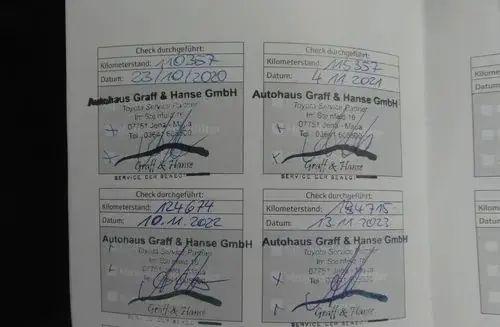 Check durchgeführt:
Kilometerstand: 110367
Datum: 23/10/2020
Autohaus Graff & Hanse GmbH
Toyota Service Partner
Im Steinfeld 16
07751 Jena - Maua
Tel. 03641
Graff & Hanse
Check durchgeführt:
Kilometerstand: 115357
Datum: 4.11.2021
Autohaus Graff & Hanse GmbH
Toyota Service Partner
Im Steinfeld 16
07751 Jena - Maua
Tel. 03641
Graff & Hanse
Check durchgeführt:
Kilometerstand: 124674
Datum: 10.11.2022
Autohaus Graff & Hanse GmbH
Toyota Service Partner
Im Steinfeld 16
07751 Jena
Graff & Hanse
Check durchgeführt:
Kilometerstand:
Datum: 13.11.2023
Autohaus Graff & Hanse GmbH
Toyota Service Partner
Im Steinfeld 16
07751 Jena - Maua
Graff & Hanse